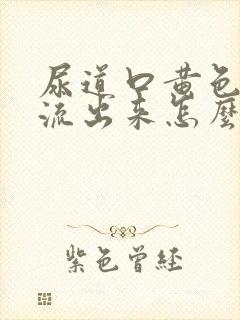 尿道口黄色
流出来怎麼
紫色曾经